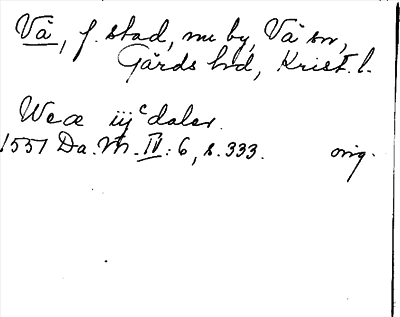 Vä, f. stad, nu by, Vä sn,
Gärds hd, Krist. l.
Weæ iijᶜ daler.
1551 Da. M. IV: 6, s. 333. orig.